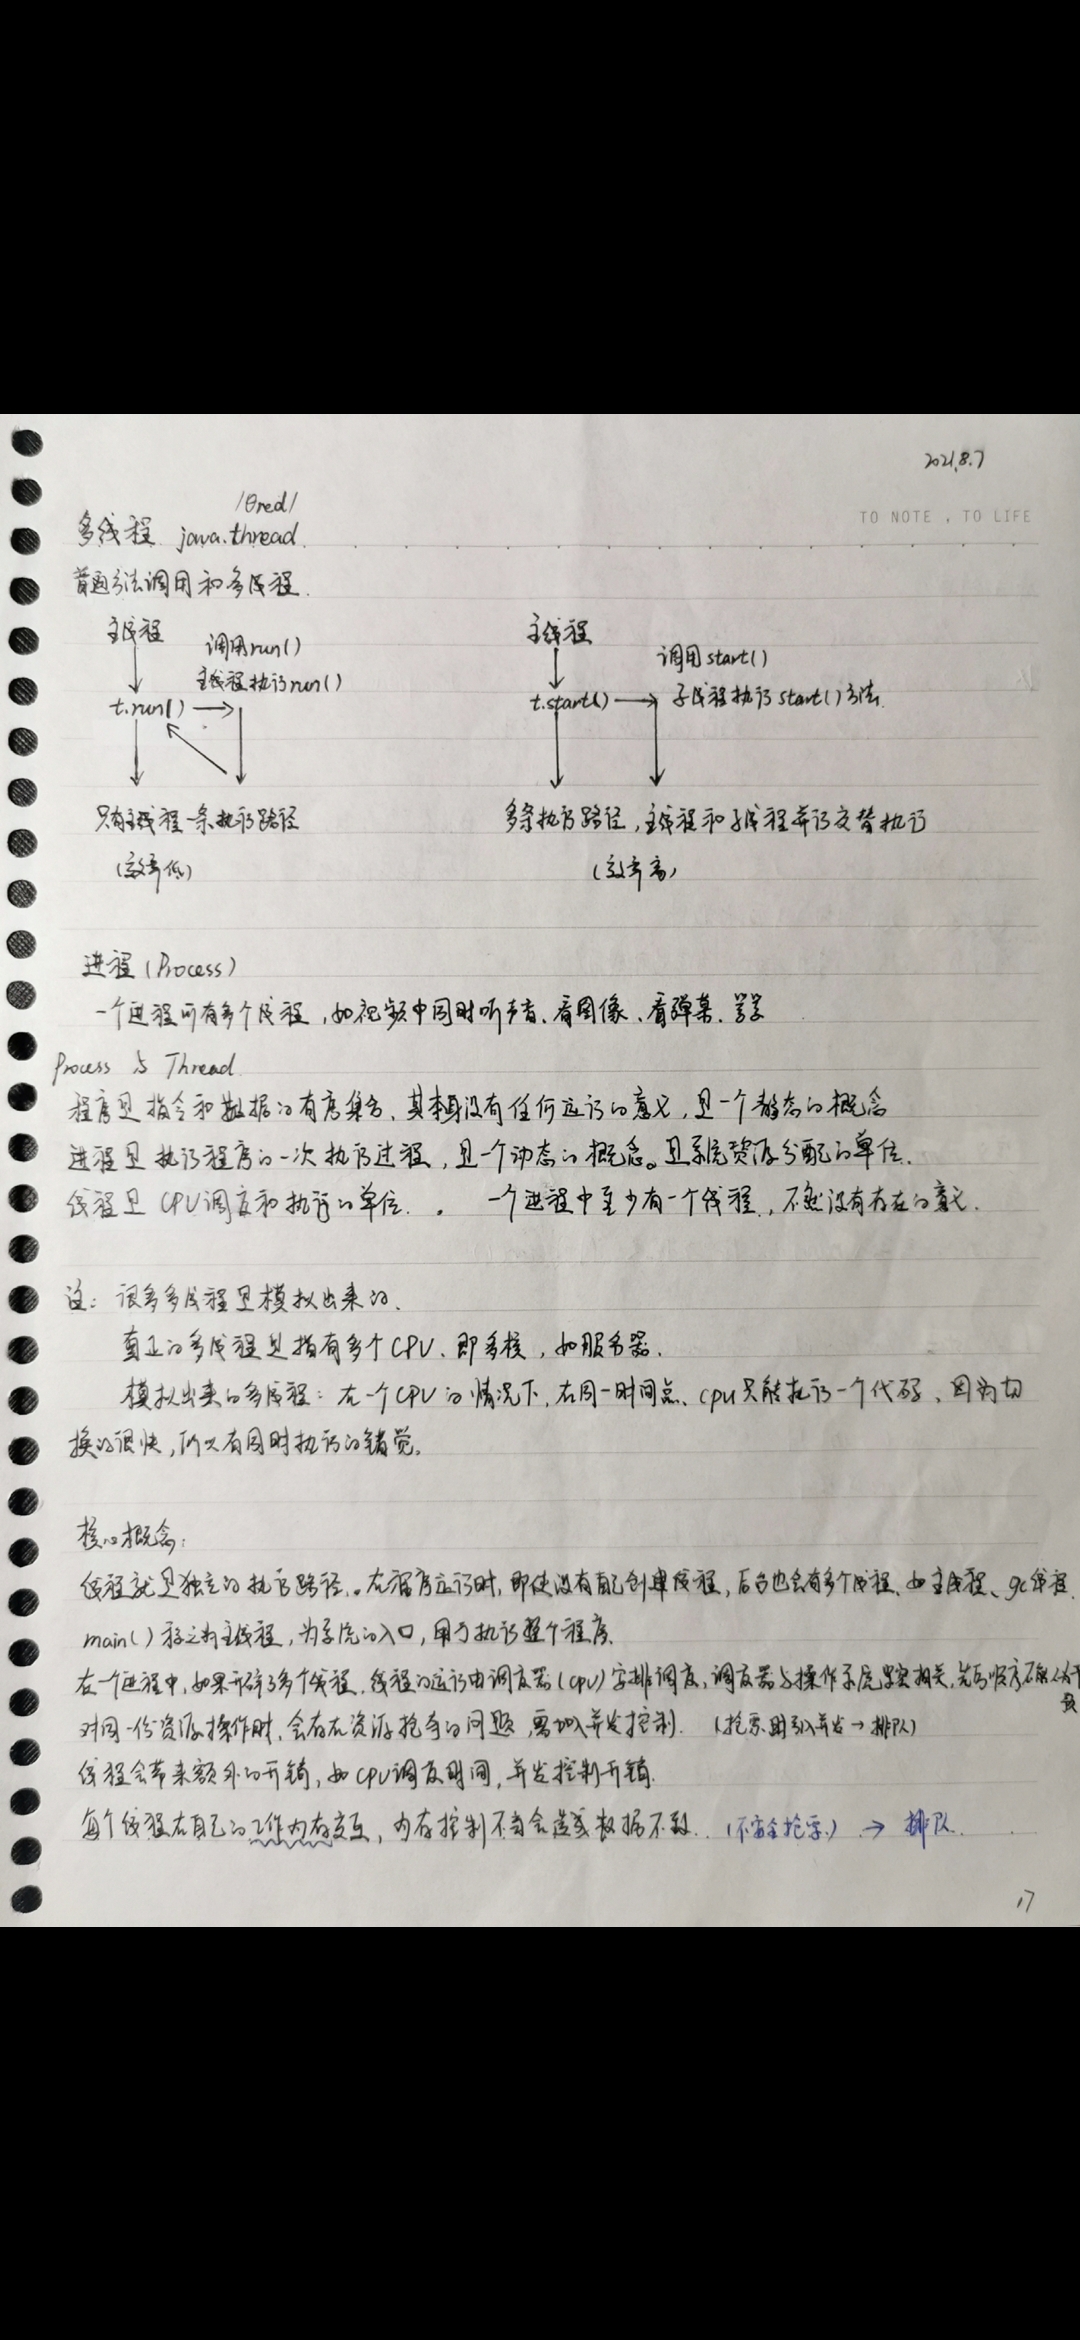 2021.8.7
TO NOTE , TO LIFE
/θred/
多线程 java.thread.
普通方法调用和多线程.
主线程
调用run()
主线程执行run()
t.run()
只有主线程一条执行路径
(效率低)
主线程
调用start()
t.start() 子线程执行start()方法.
多条执行路径，主线程和子线程并行交替执行
(效率高)
进程(Process)
一个进程可有多个线程，如视频中同时听声音、看图像、看弹幕、等等
Process 与 Thread
程序是指令和数据的有序集合、其本身没有任何运行的意义，是一个静态的概念
进程是执行程序的一次执行过程，是一个动态的概念。是系统资源分配的单位.
线程是CPU调度和执行的单位. 一个进程中至少有一个线程，不然没有存在的意义.
注: 很多多线程是模拟出来的.
真正的多线程是指有多个CPU、即多核，如服务器.
模拟出来的多线程: 在一个CPU的情况下，在同一时间点、cpu只能执行一个代码、因为切
换的很快，所以有同时执行的错觉。
核心概念:
线程就是独立的执行路径。在程序运行时，即使没有自己创建线程，后台也会有多个线程、如主线程、gc线程.
main()称之为主线程，为系统的入口，用于执行整个程序.
在一个进程中，如果开辟了多个线程，线程的运行由调度器(cpu)安排调度，调度器与操作系统紧密相关，先后顺序不能人为干
预
对同一份资源操作时，会存在资源抢夺的问题，需加入并发控制. (抢票 并发→排队)
线程会带来额外的开销，如cpu调度时间，并发控制开销.
每个线程在自己的工作内存交互，内存控制不当会造成数据不一致. (不安全抢票) → 排队.
17